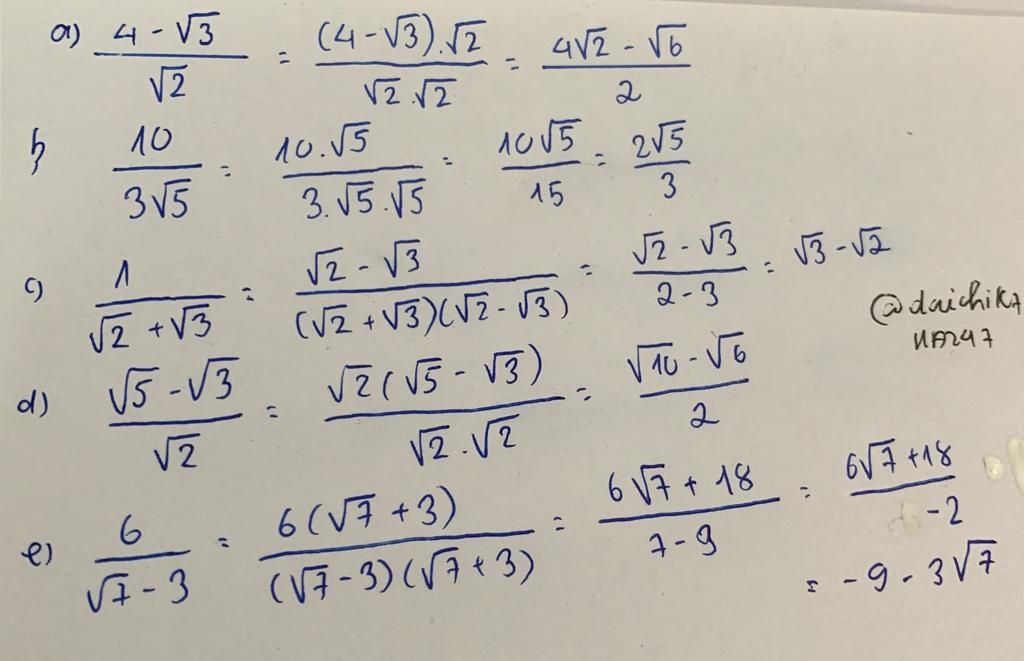 a) (4 - √3)/√2 = ((4 - √3).√2)/(√2.√2) = (4√2 - √6)/2
b) 10/(3√5) = (10.√5)/(3.√5.√5) = 10√5/15 = 2√5/3
c) 1/(√2 + √3) = (√2 - √3)/((√2 + √3)(√2 - √3)) = (√2 - √3)/(2 - 3) = √3 - √2
d) (√5 - √3)/√2 = (√2(√5 - √3))/(√2.√2) = (√10 - √6)/2
e) 6/(√7 - 3) = (6(√7 + 3))/((√7 - 3)(√7 + 3)) = (6√7 + 18)/(7 - 9) = (6√7 + 18)/(-2)
= -9 - 3√7